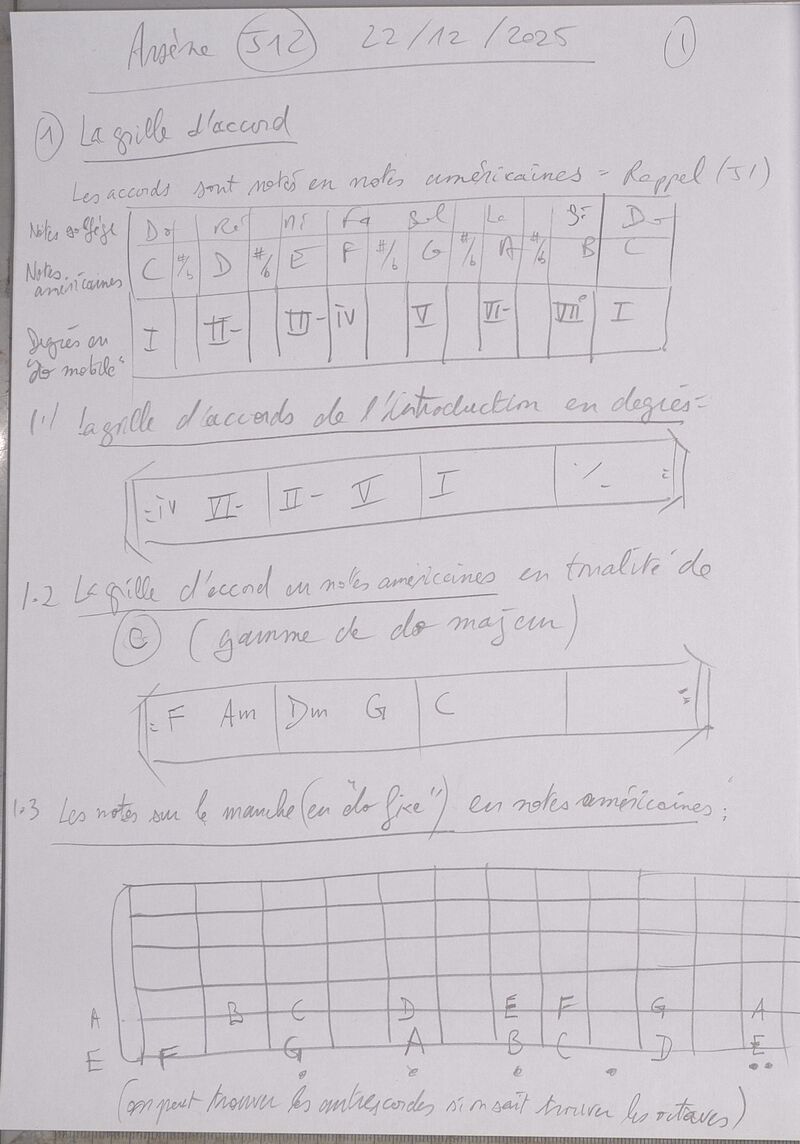 Arsène J12 22/12/2025 1
1 La grille d'accord
Les accords sont notés en notes américaines = Rappel (J1)
Notes solfège Do Ré Mi Fa Sol La Si Do
Notes américaines C #/b D #/b E F #/b G #/b A #/b B C
Degrés en "do mobile" I II- III- IV V VI- VII° I
1.1 La grille d'accords de l'introduction en degrés =
IV VI- II- V I ٪
1.2 La grille d'accord en notes américaines en tonalité de
C (gamme de do majeur)
F Am Dm G C
1.3 Les notes sur le manche (en "do fixe") en notes américaines :
A B C D E F G A
E F G A B C D E
(on peut trouver les autres cordes si on sait trouver les octaves)